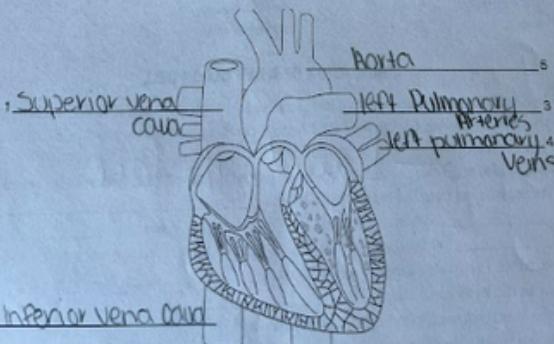 Aorta 5
1 Superior vena
cava
left Pulmonary 3
Arteries
left pulmonary 4
Veins
Inferior vena cava